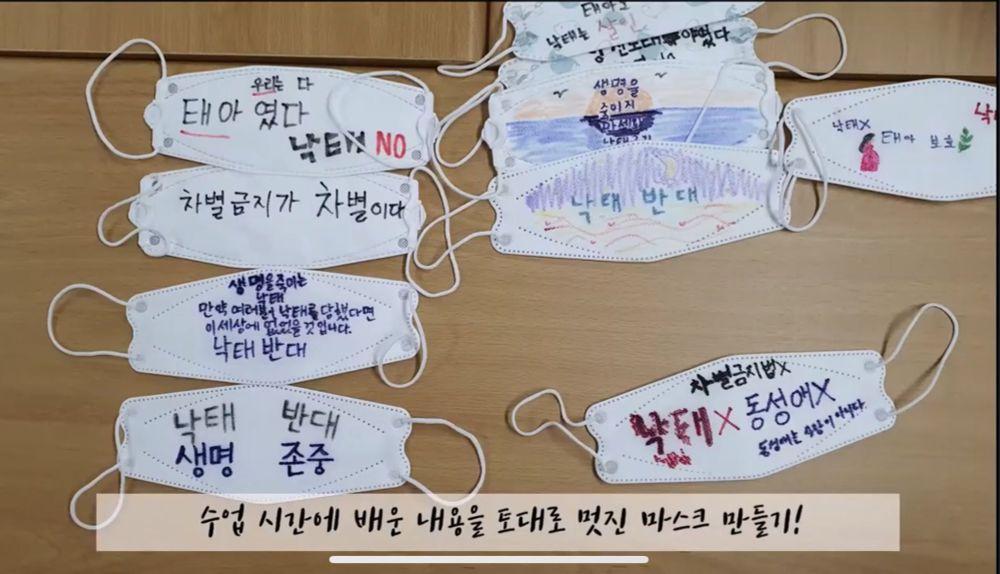 우리는 다
태아 였다
낙태 NO
차별금지가 차별이다
생명을 죽이는
낙태
만약 여러분이 낙태를 당했다면
이세상에 없었을 것입니다.
낙태 반대
낙태 반대
생명 존중
낙태는 살인
생명을
죽이지
마세요
낙태금지
낙태 반대
낙태X
태아 보호
차별금지법X
낙태X 동성애X
동성애는 사랑이 아니다.
수업 시간에 배운 내용을 토대로 멋진 마스크 만들기!